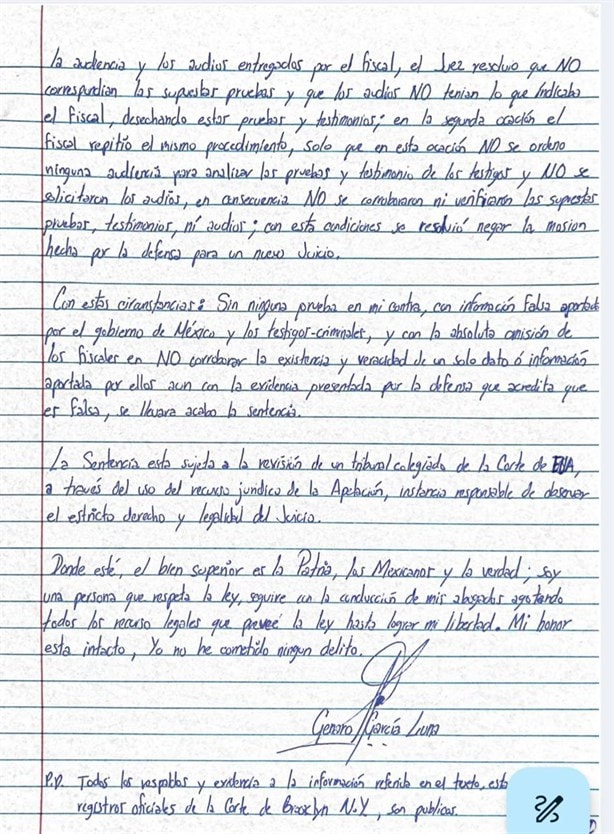 la audiencia y los audios entregados por el fiscal, el Juez resolvio que NO
correspondian las supuestas pruebas y que los audios NO tenian lo que Indicaba
el Fiscal, desechando estas pruebas y testimonios; en la segunda ocación el
fiscal repitió el mismo procedimiento, solo que en esta ocación NO se ordeno
ninguna audiencia para analizar las pruebas y testimonio de los testigos y NO se
solicitaron los audios, en consecuencia NO se corroboraron ni verificaron las supuestas
pruebas, testimonios, ni audios; con esta condiciones se resolvió negar la mosion
hecha por la defensa para un nuevo Juicio.
Con estas circunstancias: Sin ninguna prueba en mi contra, con información Falsa aportada
por el gobierno de México y los testigos-criminales, y con la absoluta omisión de
los fiscales en NO corroborar la existencia y veracidad de un solo dato ó información
aportada por ellos aun con la evidencia presentada por la defensa que acredita que
es falsa, se llevara acabo la sentencia.
La Sentencia esta sujeta a la revisión de un tribunal colegiado de la Corte de EUA,
a través del uso del recurso jurídico de la Apelación, instancia responsable de
el estricto derecho y legalidad del Juicio.
Donde esté, el bien superior es la Patria, los Mexicanos y la verdad; soy
una persona que respeta la ley, seguire con la conducción de mis abogados agotando
todos los recurso legales que preveé la ley hasta lograr mi libertad. Mi honor
esta intacto, Yo no he cometido ningun delito.
Genaro García Luna
P.D. Todos los respaldos y evidencia a la información referida en el texto,
registros oficiales de la Corte de Brooklyn N.Y, son publicos